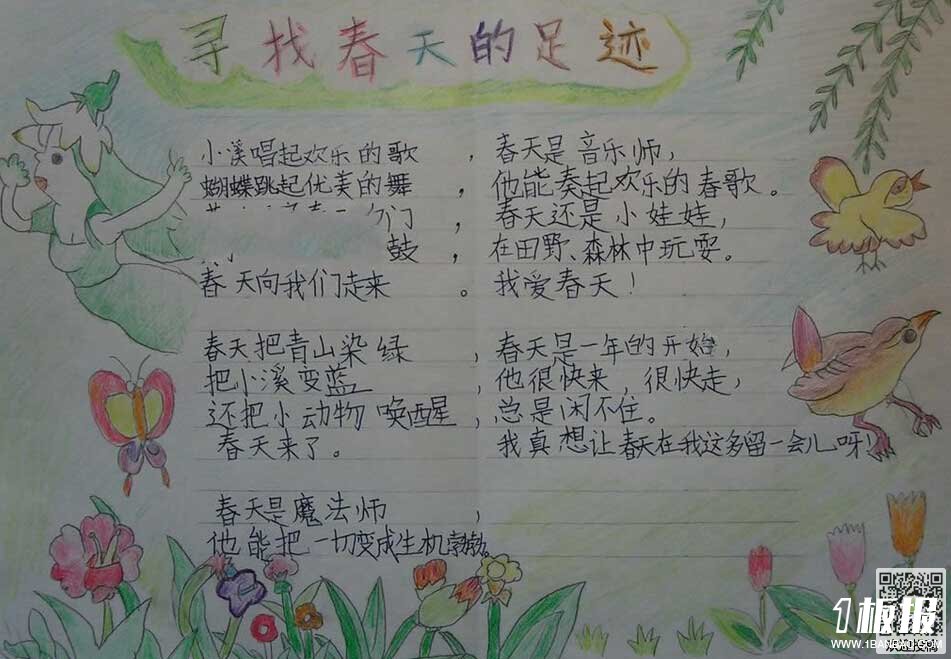 寻找春天的足迹
小溪唱起欢乐的歌，
蝴蝶跳起优美的舞，
们，
鼓，
春天向我们走来。
春天把青山染绿，
把小溪变蓝，
还把小动物唤醒，
春天来了。
春天是魔法师，
他能把一切变成生机勃勃。
春天是音乐师，
他能奏起欢乐的春歌。
春天还是小娃娃，
在田野、森林中玩耍。
我爱春天！
春天是一年的开始，
他很快来，很快走，
总是闲不住。
我真想让春天在我这多留一会儿呀！
1板报
WWW.1BANBAO.COM